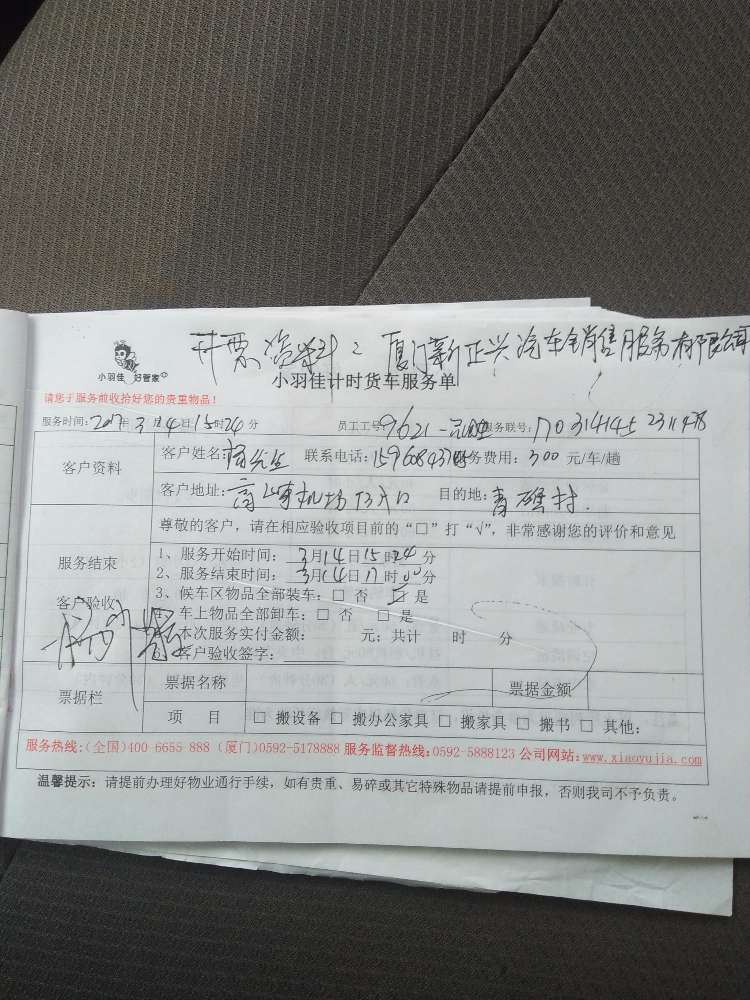 开票资料：厦门新正兴汽车销售服务有限公司
小羽佳 好管家
小羽佳计时货车服务单
请您于服务前收拾好您的贵重物品！
服务时间：2017年3月14日15时24分 员工工号：9621 务联号：
客户资料
客户姓名：杨先生 联系电话： 务费用：300元/车/趟
客户地址：高崎机场 目的地：青礁村.
尊敬的客户，请在相应验收项目前的“□”打“√”，非常感谢您的评价和意见
服务结束
客户验收
1、服务开始时间：3月14日15时24分
2、服务结束时间：3月14日17时00分
3、候车区物品全部装车：□ 否 □ 是
车上物品全部卸车：□ 否 □ 是
本次服务实付金额： 元；共计 时 分
客户验收签字：
票据栏
票据名称 票据金额
项 目 □ 搬设备 □ 搬办公家具 □ 搬家具 □ 搬书 □ 其他：
服务热线：(全国)400 6655 888 (厦门)0592-5178888 服务监督热线：0592-5888123 公司网站：www.xiaoyujia.com
温馨提示：请提前办理好物业通行手续，如有贵重、易碎或其它特殊物品请提前申报，否则我司不予负责。